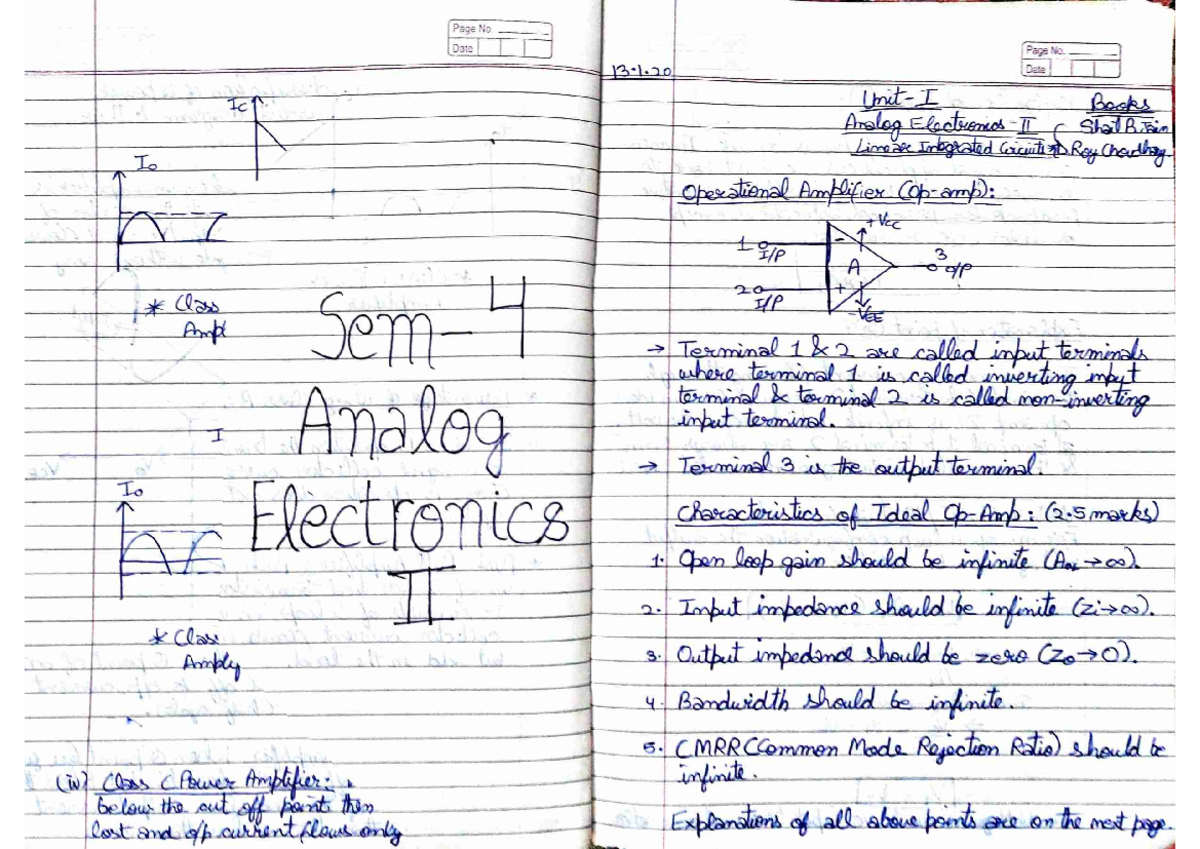 Page No.
Date
Ic
Io
* Class
Ampl
Sem-4
Analog
I
Io
Electronics
II
* Class
Amply
(iv) Class C Power Amplifier:
below the cut off point then
lost and o/p current flows only
Page No.
Date
13.1.20
Unit-I
Books
Analog Electronics-II
Shail B. Jain
Linear Integrated Circuits
Roy Choudhary
Operational Amplifier (Op-amp):
+Vcc
1 I/P
-
A
3 o/p
2 I/P
+
-VEE
→ Terminal 1 & 2 are called input terminals
where terminal 1 is called inverting input
terminal & terminal 2 is called non-inverting
input terminal.
→ Terminal 3 is the output terminal.
Characteristics of Ideal Op-Amp: (2.5 marks)
1. Open loop gain should be infinite (AOL → ∞).
2. Input impedance should be infinite (Zi→∞).
3. Output impedance should be zero (Zo→0).
4. Bandwidth should be infinite.
5. CMRR(Common Mode Rejection Ratio) should be
infinite.
Explanations of all above points are on the next page.